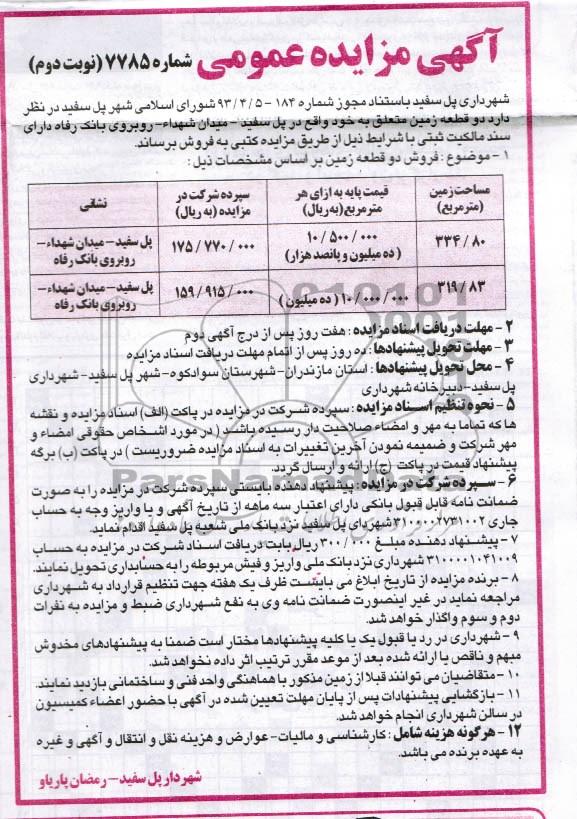 آگهی مزایده عمومی شماره ۷۷۸۵ (نوبت دوم)
شهرداری پل سفید باستناد مجوز شماره ۱۸۴ - ۹۳/۴/۵ شورای اسلامی شهر پل سفید در نظر
دارد دو قطعه زمین متعلق به خود واقع در پل سفید - میدان شهداء- روبروی بانک رفاه دارای
سند مالکیت ثبتی با شرایط ذیل از طریق مزایده کتبی به فروش برساند.
۱ - موضوع : فروش دو قطعه زمین بر اساس مشخصات ذیل :
مساحت زمین (مترمربع) قیمت پایه به ازای هر مترمربع(به ریال) سپرده شرکت در مزایده (به ریال) نشانی
۳۳۴/۸۰ ۱۰/۵۰۰/۰۰۰ (ده میلیون و پانصد هزار) ۱۷۵/۷۷۰/۰۰۰ پل سفید - میدان شهداء- روبروی بانک رفاه
۳۱۹/۸۳ ۱۰/۰۰۰/۰۰۰ ( ده میلیون ) ۱۵۹/۹۱۵/۰۰۰ پل سفید - میدان شهداء- روبروی بانک رفاه
۲ - مهلت دریافت اسناد مزایده : هفت روز پس از درج آگهی دوم
۳ - مهلت تحویل پیشنهادها : ده روز پس از اتمام مهلت دریافت اسناد مزایده
۴ - محل تحویل پیشنهادها : استان مازندران- شهرستان سوادکوه- شهر پل سفید- شهرداری
پل سفید- دبیرخانه شهرداری
۵ - نحوه تنظیم اسناد مزایده : سپرده شرکت در مزایده در پاکت (الف) اسناد مزایده و نقشه
ها که تماما به مهر و امضاء صلاحیت دار رسیده باشد ( در مورد اشخاص حقوقی امضاء و
مهر شرکت و ضمیمه نمودن آخرین تغییرات به اسناد مزایده ضروریست ) در پاکت (ب) برگه
پیشنهاد قیمت در پاکت (ج) ارائه و ارسال گردد.
۶ - سپرده شرکت در مزایده : پیشنهاد دهنده بایستی سپرده شرکت در مزایده را به صورت
ضمانت نامه قابل قبول بانکی دارای اعتبار سه ماهه از تاریخ آگهی و یا واریز وجه به حساب
جاری ۳۱۰۰۰۰۲۷۳۱۰۰۲ شهردای پل سفید نزد بانک ملی شعبه پل سفید اقدام نماید.
۷ - پیشنهاد دهنده مبلغ ۳۰۰/۰۰۰ ریال بابت دریافت اسناد شرکت در مزایده به حساب
۳۱۰۰۰۰۱۰۴۱۰۰۹ شهرداری نزد بانک ملی واریز و فیش مربوطه را به حسابداری تحویل نمایند.
۸ - برنده مزایده از تاریخ ابلاغ می بایست ظرف یک هفته جهت تنظیم قرارداد به شهرداری
مراجعه نماید در غیر اینصورت ضمانت نامه وی به نفع شهرداری ضبط و مزایده به نفرات
دوم و سوم واگذار خواهد شد.
۹ - شهرداری در رد یا قبول یک یا کلیه پیشنهادها مختار است ضمنا به پیشنهادهای مخدوش
مبهم و ناقص یا ارائه شده بعد از موعد مقرر ترتیب اثر داده نخواهد شد.
۱۰ - متقاضیان می توانند قبلا از زمین مذکور با هماهنگی واحد فنی و ساختمانی بازدید نمایند.
۱۱ - بازگشایی پیشنهادات پس از پایان مهلت تعیین شده در آگهی با حضور اعضاء کمیسیون
در سالن شهرداری انجام خواهد شد.
۱۲ - هرگونه هزینه شامل : کارشناسی و مالیات- عوارض و هزینه نقل و انتقال و آگهی و غیره
به عهده برنده می باشد.
شهردار پل سفید- رمضان پاریاو